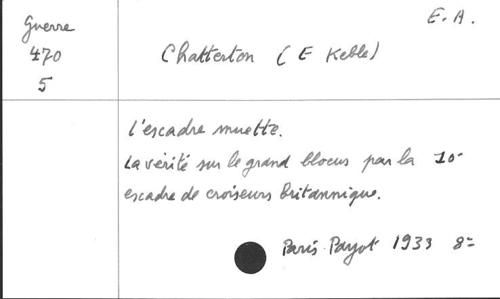 Guerre
470
5
E. A.
Chatterton (E Keble)
L'escadre muette.
La vérité sur le grand blocus par la 10e
escadre de croiseurs britannique.
Paris Payot 1933 8=